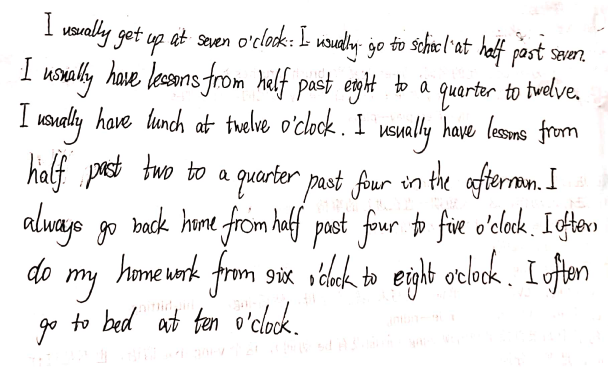 I usually get up at seven o'clock. I usually go to school at half past seven.
I usually have lessons from half past eight to a quarter to twelve.
I usually have lunch at twelve o'clock. I usually have lessons from
half past two to a quarter past four in the afternoon. I
always go back home from half past four to five o'clock. I often
do my homework from six o'clock to eight o'clock. I often
go to bed at ten o'clock.